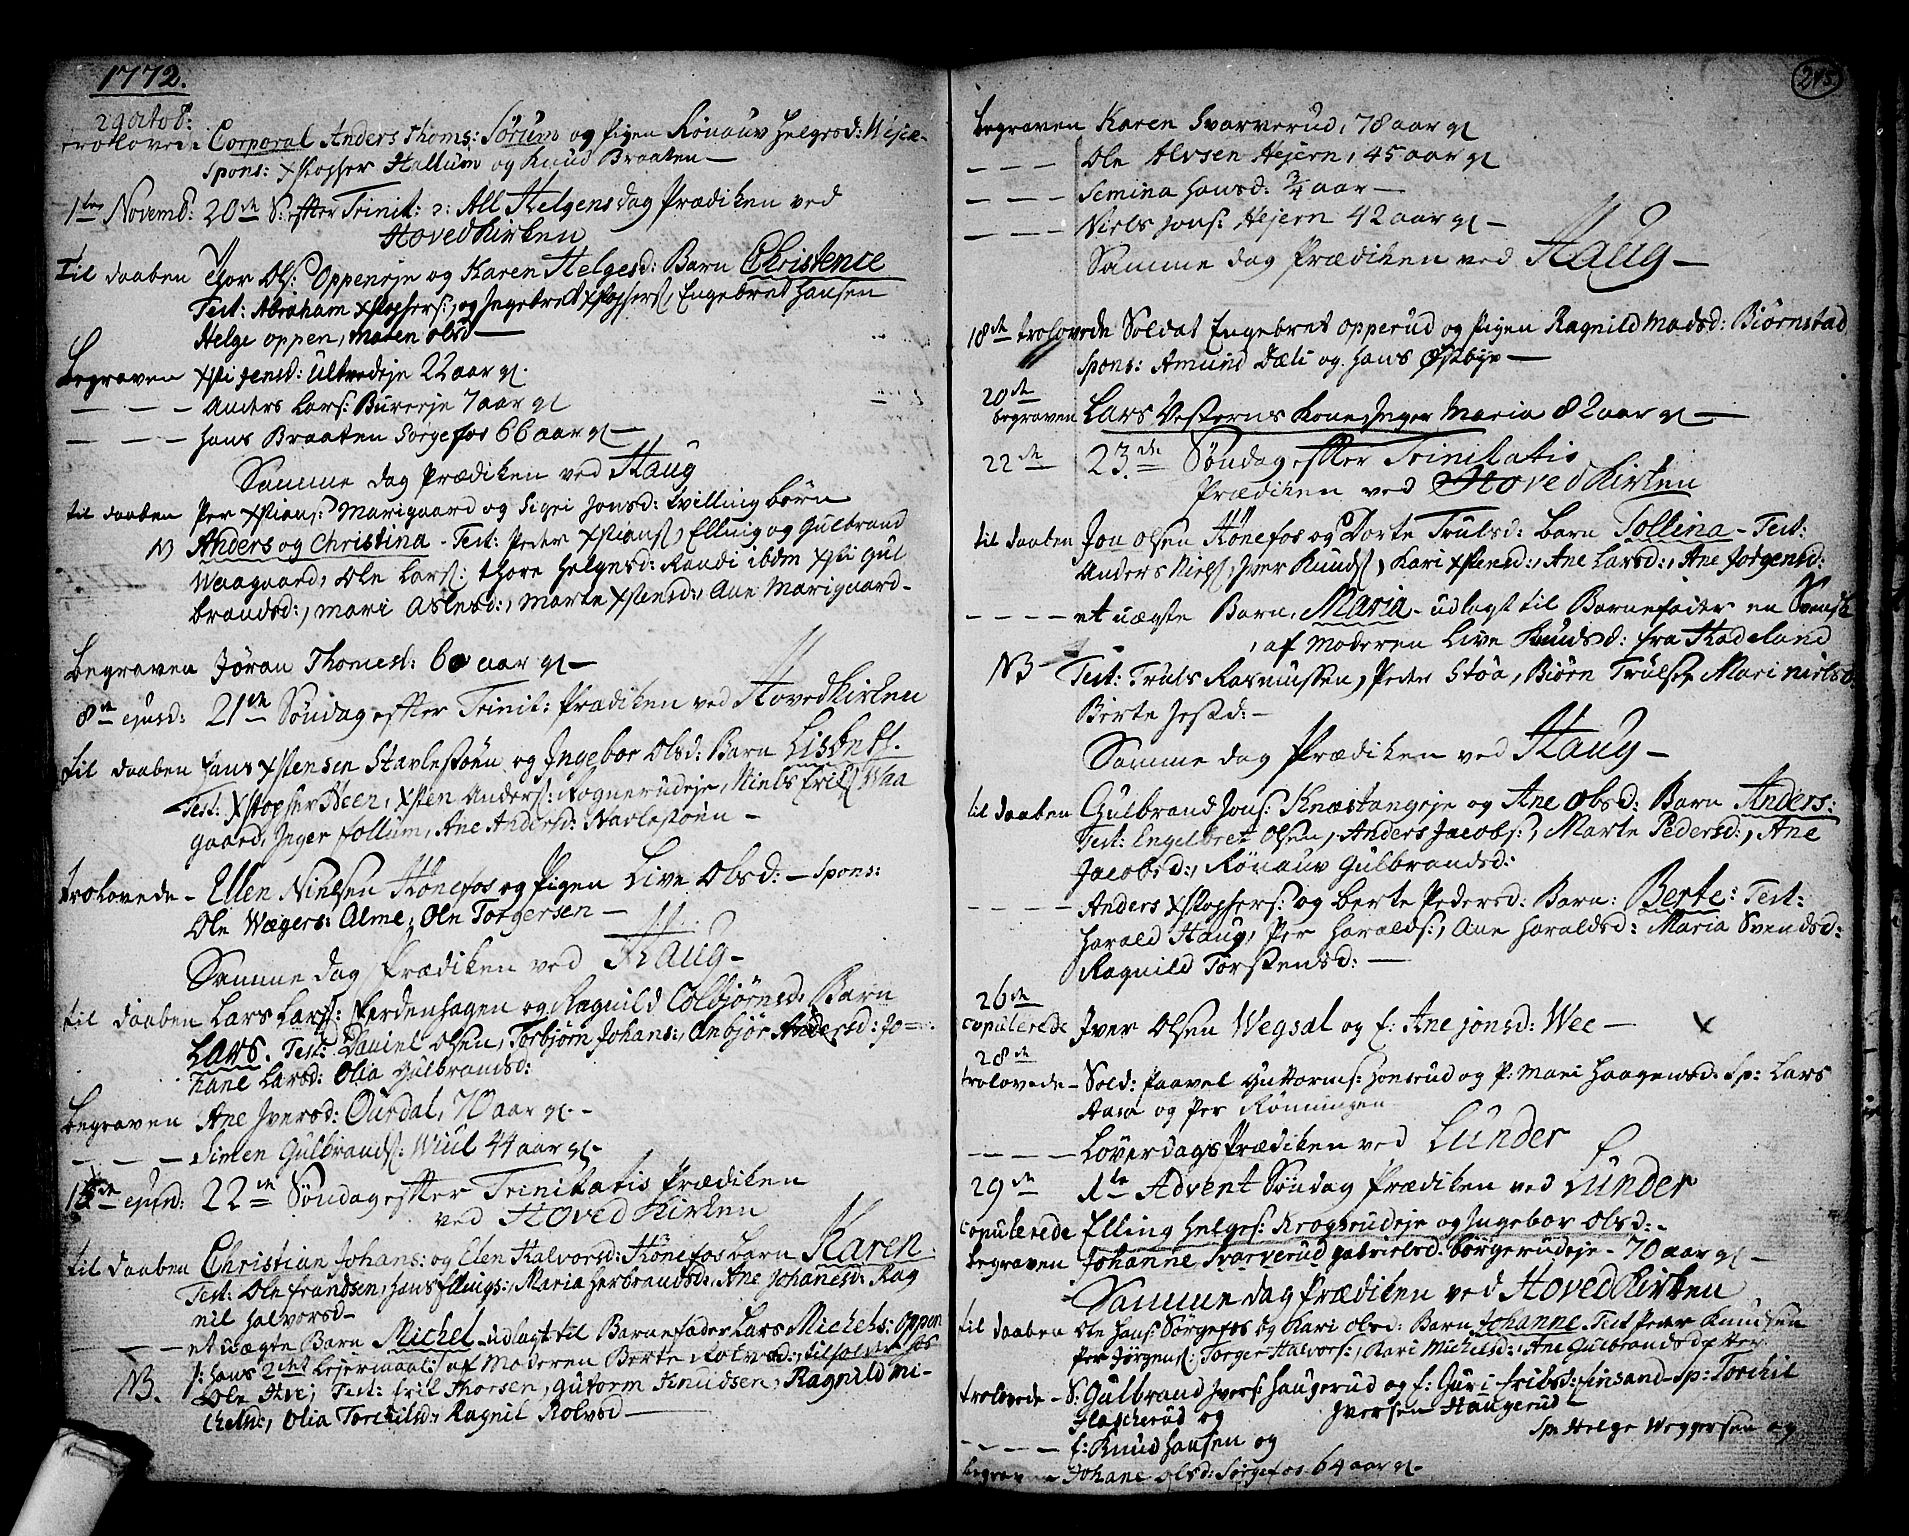 1772.
29 octob:
trolovede Corporal Anders Thoms: Sørum og Pigen Rønauv Helgesd:
Spons: Xstopher Hallum og Knud Braaten —
1ste Novemb: 20de S: effter Trinit: ɔ: All Helgens dag Prædiken ved
Hoved Kirken
Til daaben Thor Ols: Oppeneje og Karen Helgesd: Barn Christence
Test: Abraham Xstophers:, og Ingebret Xstophers:, Engebret Hansen
Helge oppen, Maren olsd —
Begraven Xsti Jensd: Ultvedeje 22 aar gl.
— — — Anders Lars: Burereje 7 aar gl
— — — Hans Braaten Sørgefos 66 aar gl —
Samme dag Prædiken ved Haug
til daaben Per Xstians: Marigaard og Sigri Jonsd: tvilling børn
NB Anders og Christina - Test: Peder Xstians:, Elling og Gulbrand
Waagaard, Ole Lars:, Thore Helgesd: Randi ibdm Xsti Gul
brandsd:, Mari Aslesd:, Marte Xstensd:, Ane Marigaard -
Begraven Jøran Thomesd: 60 aar gl —
8de ejusd: 21de Søndag effter Trinit: Prædiken ved Hoved kirken
til daaben Hans Xstensen Stavlestøen og Ingebor Olsd: Barn Lisbeth.
Test: Xstopher Heen, Xsten Anders: Rognerudeje, Niels Eriks: Waa
gaard, Inger Follum, Ane Andersd: Navlestøen —
trolovede - Ellen Nielsen Hønefos og Pigen Live Olsd: — Spons:
Ole Wægers: Alme, Ole Torgersen —
Samme dag Prædiken ved Haug —
til daaben Lars Lars: Pærdenhagen og Ragnild Colbjørnsd: Barn
Lars. Test: Daniel Olsen, Torbjørn Johans:, Anbjør Andersd: Jo=
hane Larsd: Olia Gulbrandsd:
Begraven Ane Iversd: Ourdal, 70 aar gl. -
— — — Simen Gulbrands: Wiul 44 aar gl -
15de ejusd: 22de Søndag effter Trinitatis Prædiken
ved Hoved Kirken
til daaben Christian Johans: og Elen Halvorsd: Hønefos barn Karen
Test: Ole Frandsen, Hans Ellings:, Maria Herbrandsd:, Ane Johanesd: Rag
nil Halvorsd —
— — — et uægte Barn Michel - udlagt til Barnefader Lars Michels: Oppen
NB. /: Hans 2det Lejermaal :/ af Moderen Berte Rolvsd:
Ole Hve, Test: Erik Thorsen, Gutorm Knudsen, Ragnild Mi-
chelsd:, Olia Torchilsd:, Ragnil Rolvsd —
245
Begraven Karen Svarverud, 78 aar gl
— — — Ole Alvsen Hejern, 45 aar gl
— — — Semina Hansd: 3/4 aar —
— — — Niels Jons: Hejern 42 aar gl —
Samme dag Prædiken ved Haug —
18de trolovede Soldat Engebret Opperud og Pigen Ragnild Madsd: Biørnstad
Spons: Amund Dæli og Hans Østbye —
20de
begraven Lars Vesterns Kone Inger Maria 82 aar gl —
22de 23de Søndag effter Trinitatis
Prædiken ved Hoved Kirken
til daaben Jon Olsen Hønefos og Dorte Trulsd: barn Tollina - Test:
Anders Niels:, Iver Knuds:, Kari Xstensd:, Ane Larsd:, Ane Jørgensd:
— — — et uægte Barn, Maria - udlagt til Barnefader en Svensk
, af Moderen Live Knudsd: fra Hadeland
NB — Test: Truls Rasmussen, Peder Støa, Biørn Truls:, Mari Nielsd.
Berte Jensd: —
Samme dag Prædiken ved Haug —
til daaben Gulbrand Jons: Knæstangeje og Ane Olsd: Barn Anders:
Test: Engelbret Olsen, Anders Jacobs:, Marte Pedersd:, Ane
Jacobsd:, Rønauv Gulbrandsd:
— — — Anders Xstophers: og Berte Pedersd: Barn: Berte: Test:
Harald Haug, Per Haralds:, Ane Haraldsd: Maria Svendsd:
Ragnild Torstensd: —
26de
copulerede Iver Olsen Wegsal og E: Ane Jonsd: Wee — X
28de
trolovede — Sold: Paavel Guttorms: Honerud og P: Mari Haagensd: Sp: Lars
Aasa og Per Rønningen
— — — Løverdags Prædiken ved Lunder
29de 1te Advent Søndag Prædiken ved Lunder
copulerede Elling Helges: Krogsrudeje og Ingebor Olsd: -
Begraven Johanne Svarverud Gabrielsd. Børgerudeje — 70 aar gl —
Samme dag Prædiken ved Hoved Kirken
til daaben Ole Hans: Sørgefos og Kari Olsd: Barn Johanne - Test: Peder Knudsen
Per Jørgens:, Torger Halvors:, Kari Michelsd:, Ane Gulbrandsd
trolovede — S: Gulbrand Ivers: Haugerud og E: Guri Eriksd: Finsand - Sp: Torchil
Flascherud og Iversen Haugerud —
— — — E: Knud Hansen og Sp: Helge Weggersen og
begraven Johane Olsd: Sørgefos 64 aar gl —